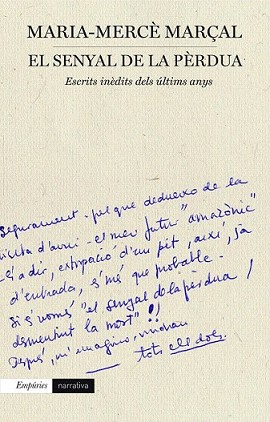 MARIA-MERCÈ MARÇAL
EL SENYAL DE LA PÈRDUA
Escrits inèdits dels últims anys
Segurament - pel que dedueixo de la
visita d'avui - el meu futur "amazònic"
és a dir, extirpació d'un pit, així, ja
d'entrada, és més que probable.
Si és només "el senyal de la pèrdua /
desmentint la mort"!!
Després, m'imagino, vindran
tots els dols.
Empúries narrativa